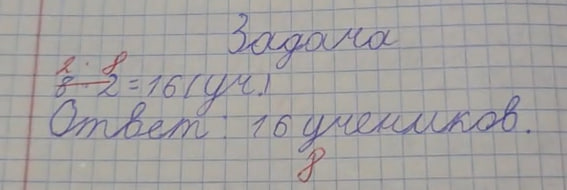 Задача
2 · 8
8 · 2 = 16 (уч.)
Ответ: 16 учеников.
8